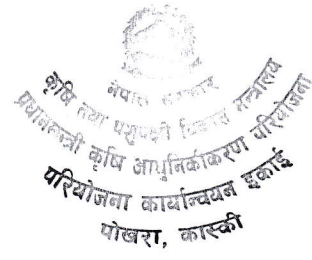 नेपाल सरकार
कृषि तथा पशुपन्छी विकास मन्त्रालय
प्रधानमन्त्री कृषि आधुनिकीकरण परियोजना
परियोजना कार्यान्वयन इकाई
पोखरा, कास्की